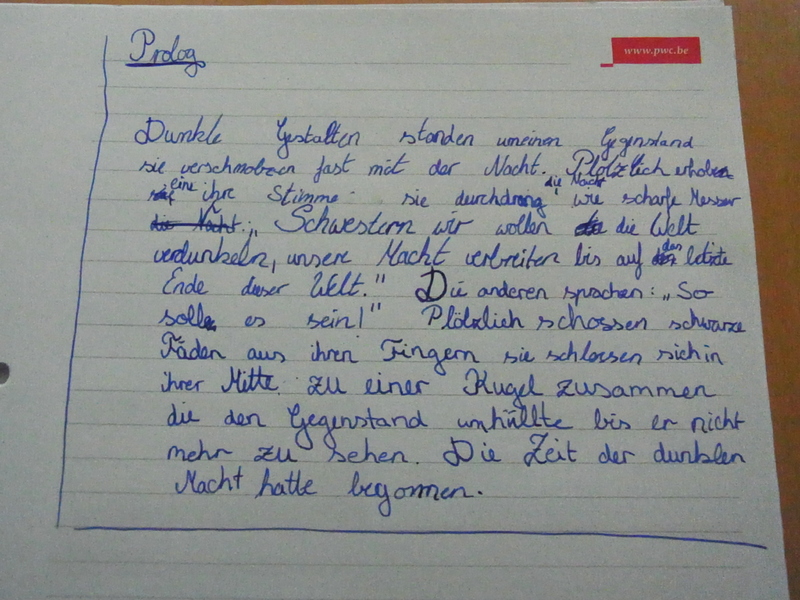 Prolog
www.pwc.be
Dunkle Gestalten standen umeinen Gegenstand
sie verschmolzen fast mit der Nacht. Plötzlich erhob
eine ihre Stimme sie durchdrang die Nacht wie scharfe Messer
die Nacht: „Schwestern wir wollen die Welt
verdunkeln, unsere Macht verbreiten bis auf das letzte
Ende dieser Welt." Die anderen sprachen: „So
soll es sein!" Plötzlich schossen schwarze
Fäden aus ihren Fingern sie schlossen sich in
ihrer Mitte zu einer Kugel zusammen
die den Gegenstand umhüllte bis er nicht
mehr zu sehen. Die Zeit der dunklen
Macht hatte begonnen.